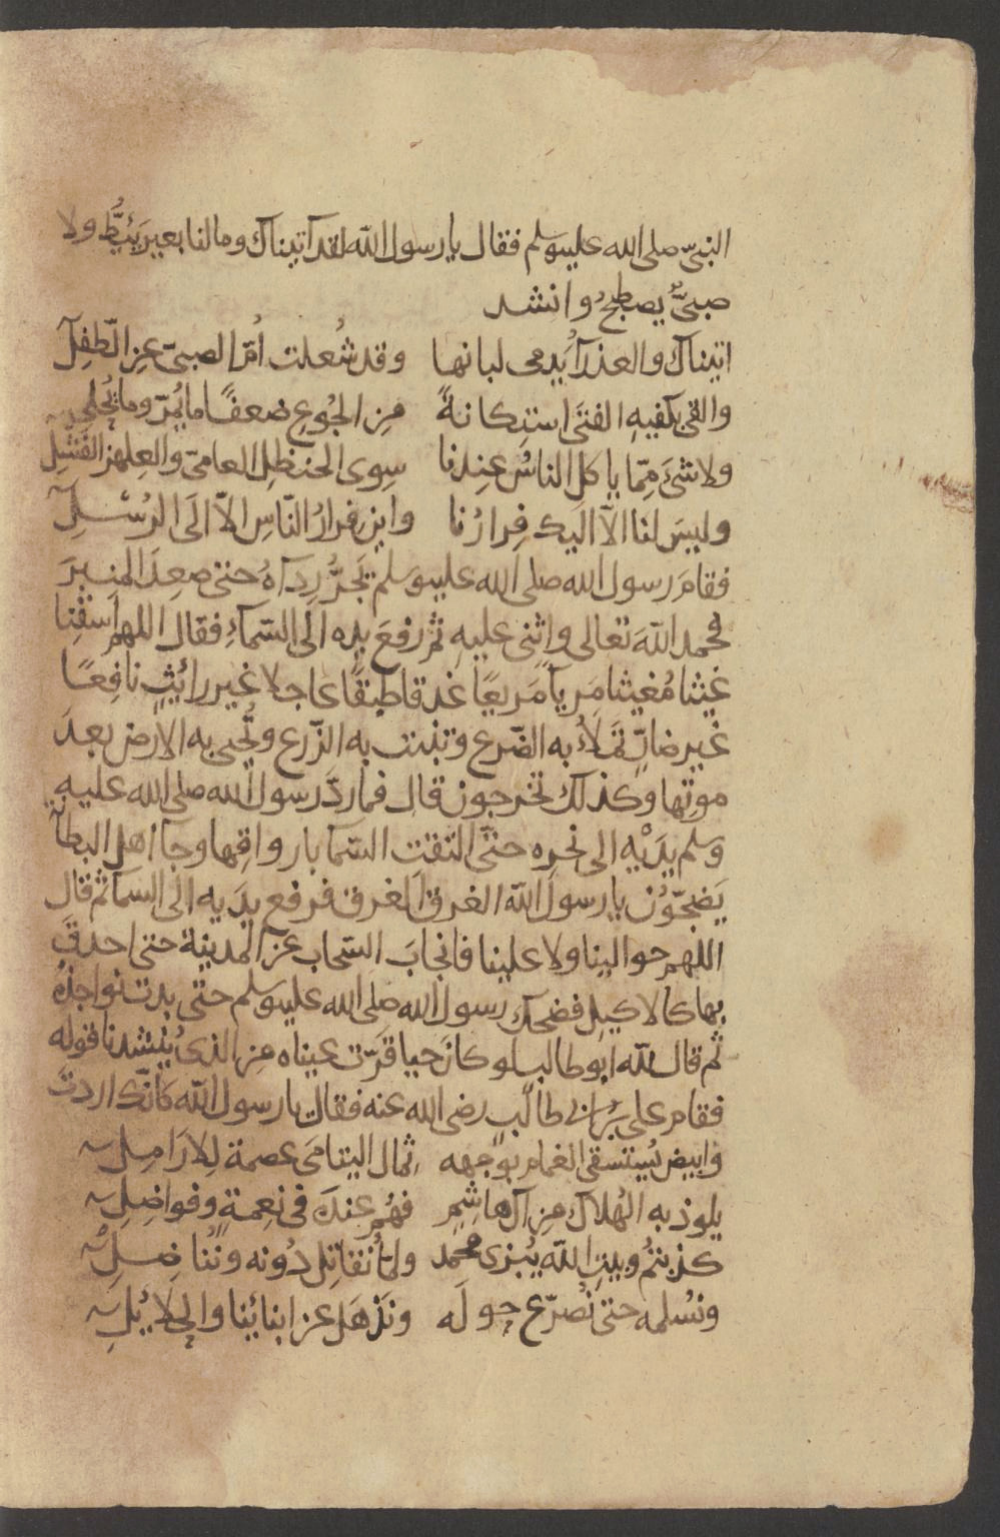 النبىّ صلى الله عليه وسلم فقال يا رسول الله لقد آتيناك وما لنا بعير يَئِطُّ ولا
صبىٌّ يصطبحُ وانشد
اتيناك والعذرآ يَدمى لبانها وقد شُعلت اُمّ الصبىّ عنِ الطّفِلَ
والقى بكفيهِ الفتَى استِكانةً مِن الجُوعِ ضعفًا ما يُمِرّ وما يُحْلى
ولا شئَ مِمّا ياكل الناسُ عِندنا سِوى الحنظلِ العامىّ والعِلهزِ الفَشْلِ
وليسَ لنا الاّ اليك فِرارُنا واين فرارُ النّاسِ الاّ الَى الرُسْلِ
فقامَ رسول الله صلى الله عليه وسلم يَجرُّ رِدَآهُ حتى صعِدَ المنبرَ
فحمد اللهَ تعالى واثنى عليهِ ثم رفعَ يده الى السّمآءِ فقال اللهم اسْقِنا
غيثا مُغيثا مَريآ مَريعًا غدقا طبقًا عاجلا غير رائثٍ نافِعًا
غير ضارٍّ تَملأُ به الضّرع وتنبت به الزّرع وتُحيى به الارض بعدَ
موتِها وكذلك تخرجون قال فما ردَّ رسول الله صلى الله عليه
وسلم يدَيْهِ الى نحره حتّى التقت السّما بارواقِها وجا اهل البطآ
يَضِجّوُن يا رسولَ الله الغرق الغرق فرفع يدَيه الى السمآ ثم قال
اللهم حوالينا ولا علينا فانجابَ السّحاب عن المدينة حتى احدقَ
بها كالاكيلِ فضحك رسول الله صلى الله عليه وسلم حتى بدت نواجذهُ
ثم قال لله ابو طالب لو كانَ حيا قرّت عيناه من الذى يُنشدنا قوله
فقام على بن ابى طالب رضى الله عنه فقال يا رسول الله كانّك اردتَ
وابيض يُستسقى الغمام بوجهه ثمال اليتامَى عصمة للارَامِلِ
يلوذ به الهُلاك مِن آل هاشِمِ فهُم عندَه فى نِعمةٍ وفواضِلِ
كذبتمُ وبيتِ الله يُبزى محمد ولمّا نُقاتِل دُونه ونُناضِلِ
ونُسلمه حتى نُصرّع حولَه ونَذهَل عن ابنائنا والحلائلِ